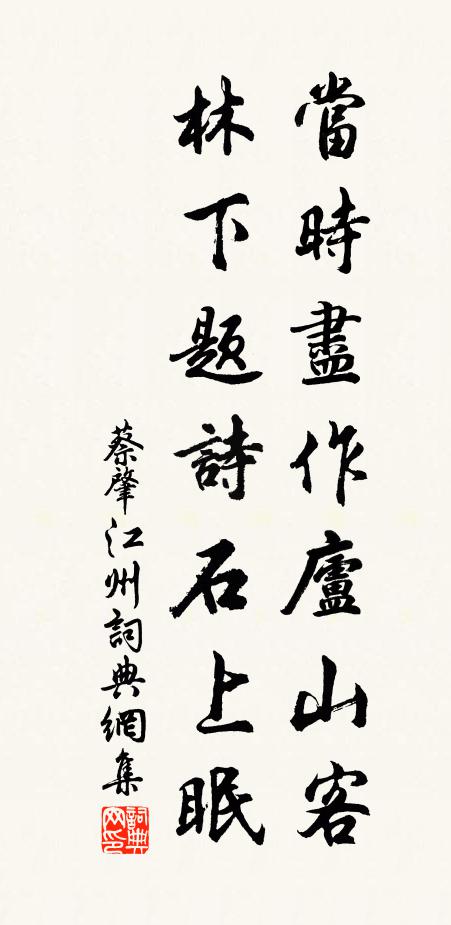 當時盡作廬山客
林下题詩石上眠
蔡肇江州詞典網集
詞典網印